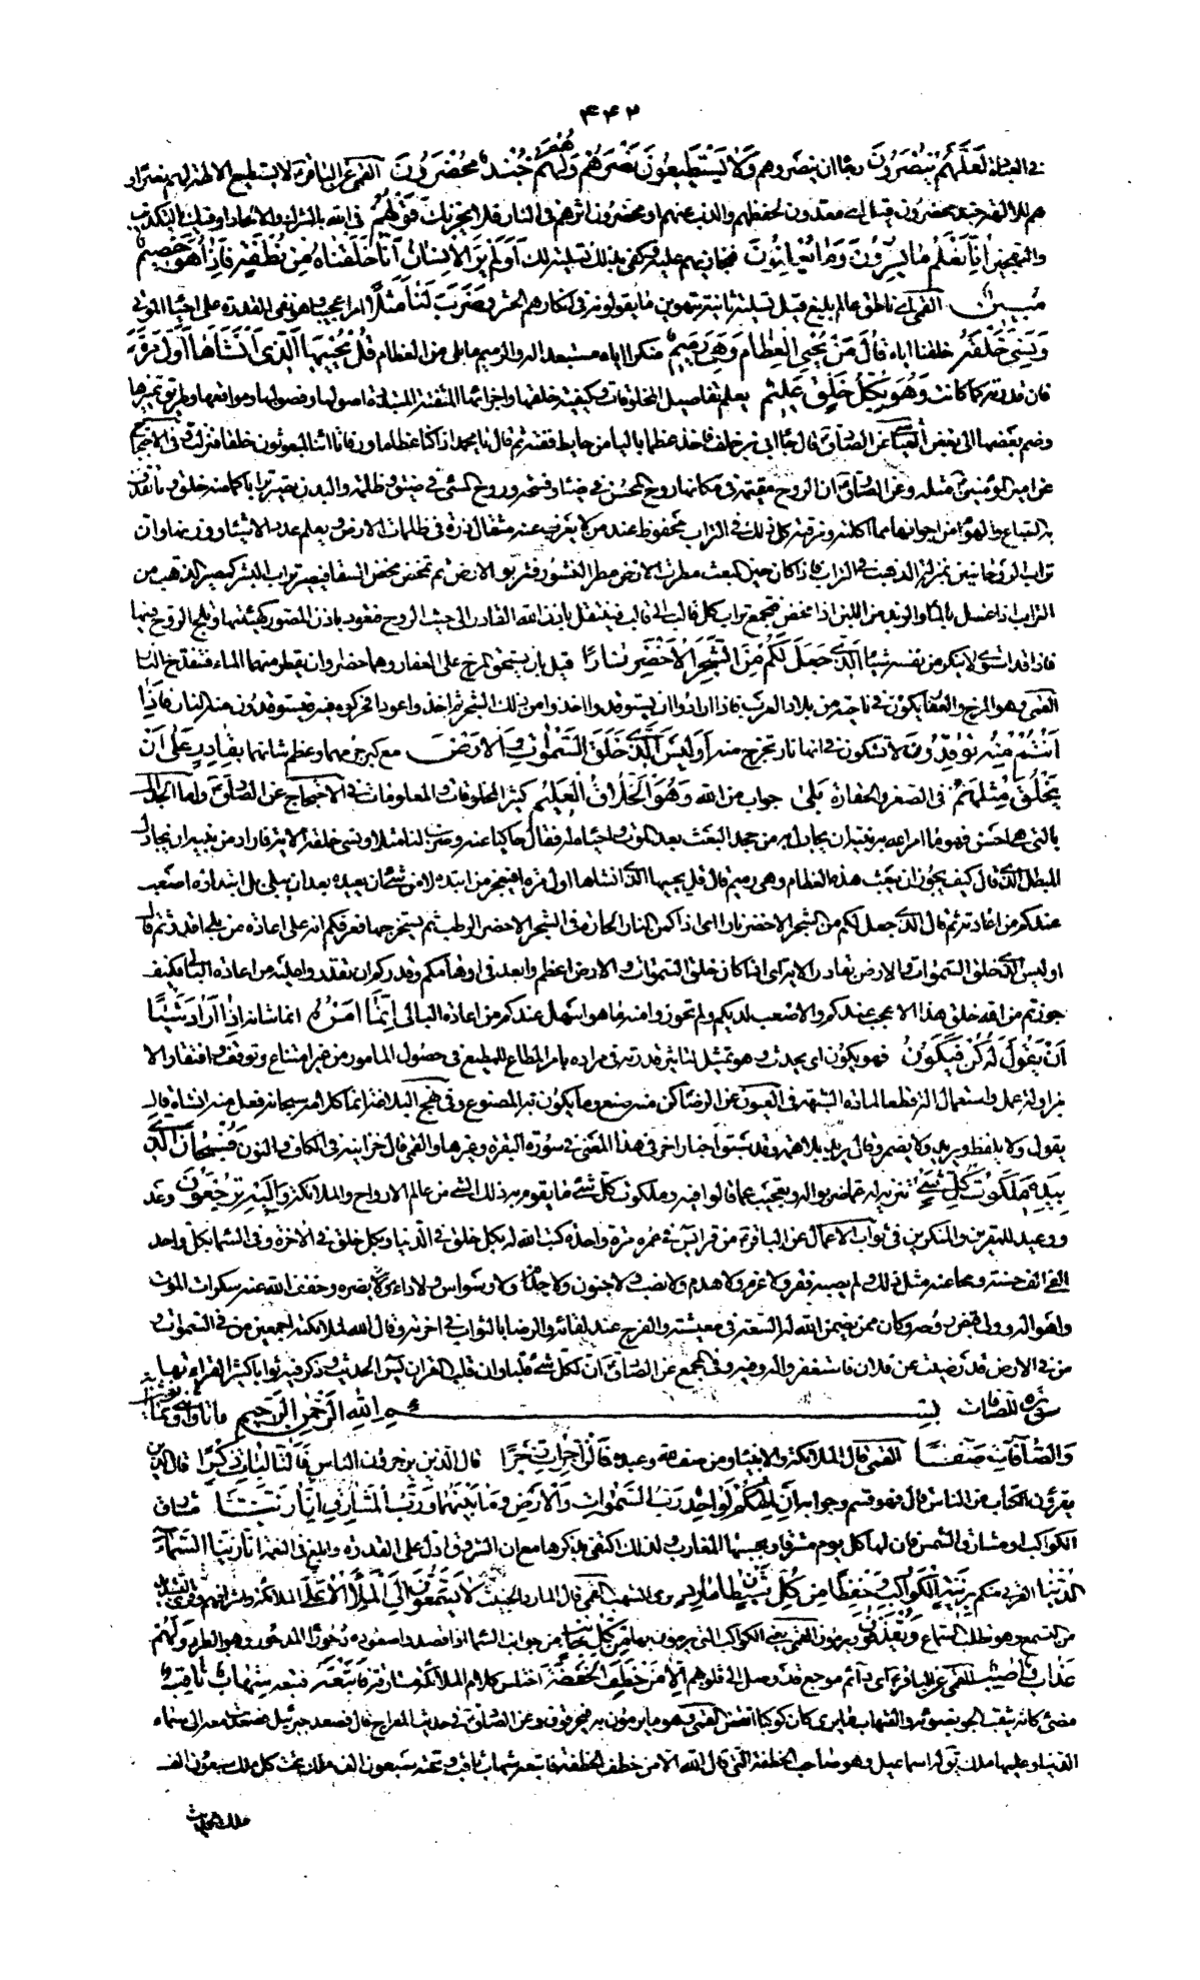 ۴۴۲
في العبادة لَعَلَّهُمْ يُنْصَرُونَ رجاء ان ينصروهم لَا يَسْتَطِيعُونَ نَصْرَهُمْ وَهُمْ لَهُمْ جُنْدٌ مُحْضَرُونَ القمي عن الباقر لا يستطيع الالهة لهم نصرا و
هم للالهة جند محضرون قيل اي معدون لحفظهم والذب عنهم او محضرون اثرهم في النار فلا يحزنك قَوْلُهُمْ في الله بالشرك والالحاد او فيك بالتكذيب
والتهجين إِنَّا نَعْلَمُ مَا يُسِرُّونَ وَمَا يُعْلِنُونَ فنجازيهم عليه وكفى بذلك تسلية لك أَوَلَمْ يَرَ الْإِنْسَانُ أَنَّا خَلَقْنَاهُ مِنْ نُطْفَةٍ فَإِذَا هُوَ خَصِيمٌ
مُبِينٌ القمي اي ناطق عالم بليغ قيل تسلية ثانية بتهوين ما يقولونه في انكارهم الحشر وَضَرَبَ لَنَا مَثَلًا امرا عجيبا وهو نفي القدرة على احياء الموتى
وَنَسِيَ خَلْقَهُ خلقنا اياه قَالَ مَنْ يُحْيِي الْعِظَامَ وَهِيَ رَمِيمٌ منكرا اياه مستبعدا له والرميم ما بلي من العظام قُلْ يُحْيِيهَا الَّذِي أَنْشَأَهَا أَوَّلَ مَرَّةٍ
فان قدرته كما كانت وَهُوَ بِكُلِّ خَلْقٍ عَلِيمٌ يعلم تفاصيل المخلوقات وكيفية خلقها واجزائها المتفتتة المتبددة اصولها وفصولها ومواقعها وطريق تمييزها
وضم بعضها الى بعض العياشي عن الصادق قال جاء ابي بن خلف فاخذ عظما باليا من حايط ففته ثم قال يا محمد اذا كنا عظاما ورفاتا ائنا لمبعوثون خلقا فنزلت وفي الاحتجاج
عن امير المؤمنين مثله وعن الصادق ان الروح مقيمة في مكانها روح المحسن في ضياء وفسحة وروح المسيئ في ضيق وظلمة والبدن يصير ترابا كما منه خلق وما تقذف
به السباع والهوام من اجوافها مما اكلته ومزقته كل ذلك في التراب محفوظ عند من لا يعزب عنه مثقال ذرة في ظلمات الارض ويعلم عدد الاشياء ووزنها وان
تراب الروحانيين بمنزلة الذهب في التراب فاذا كان حين البعث مطرت الارض مطر النشور فتربو الارض ثم تمخض مخض السقاء فيصير تراب البشر كمصير الذهب من
التراب اذا غسل بالماء والزبد من اللبن اذا مخض فيجمع تراب كل قالب الى قالبه فينتقل باذن الله القادر الى حيث الروح فتعود باذن المصور كهيئتها وتلج الروح فيها
فاذا قد استوى لا ينكر من نفسه شيئا الَّذِي جَعَلَ لَكُمْ مِنَ الشَّجَرِ الْأَخْضَرِ نَارًا قيل بان يسحق المرخ على العفار وهما خضراوان يقطر منهما الماء فتنقدح النار
القمي وهو المرخ والعفار يكون في ناحية من بلاد العرب فاذا ارادوا ان يستوقدوا اخذوا من ذلك الشجر ثم اخذوا عودا فحركوه فيه فيستوقدون منه النار فَإِذَا
أَنْتُمْ مِنْهُ تُوقِدُونَ لا تشكون في انها نار تخرج منه أَوَلَيْسَ الَّذِي خَلَقَ السَّمٰوَاتِ وَالْأَرْضَ مع كبر جرمهما وعظم شانهما بِقَادِرٍ عَلَى أَنْ
يَخْلُقَ مِثْلَهُمْ في الصغر والحقارة بَلَى جواب من الله وَهُوَ الْخَلَّاقُ الْعَلِيمُ كثير المخلوقات والمعلومات في الاحتجاج عن الصادق واما الجدال
بالتي هي احسن فهو ما امر الله به نبيه ان يجادل به من جحد البعث بعد الموت واحياءه له فقال حاكيا عنه وضرب لنا مثلا ونسي خلقه الاية فاراد من نبيه ان يجادل
المبطل الذي قال كيف يجوز ان يبعث هذه العظام وهي رميم قال قل يحييها الذي انشاها اول مرة افيعجز من ابتدء لا من شئ ان يعيده بعد ان يبلى بل ابتداؤه اصعب
عندكم من اعادته ثم قال الذي جعل لكم من الشجر الاخضر نارا اي اذا كمن النار الحارة في الشجر الاخضر الرطب ثم يستخرجها فعرفكم انه على اعادة من بلي اقدر ثم قال
اوليس الذي خلق السموات والارض بقادر الاية اي اذا كان خلق السموات والارض اعظم وابعد في اوهامكم وقدركم ان تقدروا عليه من اعادة البالي فكيف
جوزتم من الله خلق هذا الاعجب عندكم والاصعب لديكم ولم تجوزوا منه ما هو اسهل عندكم من اعادة البالي إِنَّمَا أَمْرُهُ انما شانه إِذَا أَرَادَ شَيْئًا
أَنْ يَقُولَ لَهُ كُنْ فَيَكُونُ فهو يكون اي يحدث وهو تمثيل لتاثير قدرته في مراده بامر المطاع للمطيع في حصول المامور من غير امتناع وتوقف وافتقار الى
مزاولة عمل واستعمال الة قطعا لمادة الشبهة في العيون عن الرضا كن منه صنع وما يكون به المصنوع وفي نهج البلاغة انما كلامه سبحانه فعل منه انشاه قال
يقول ولا يلفظ ويريد ولا يضمر وقال يريد بلا همة وقد سبق اخبار اخر في هذا المعنى في سورة البقرة وغيرها والقمي قال خزاينه في الكاف والنون فَسُبْحَانَ الَّذِي
بِيَدِهِ مَلَكُوتُ كُلِّ شَيْءٍ تنزيه له عما ضربوا له وتعجيب عما قالوا فيه وملكوت كل شئ ما يقوم به ذلك الشئ من عالم الارواح والملائكة وَإِلَيْهِ تُرْجَعُونَ وعد
ووعيد للمقرين والمنكرين في ثواب الاعمال عن الباقر من قرا يس في عمره مرة واحدة كتب الله له بكل خلق في الدنيا وبكل خلق في الاخرة وفي السماء بكل واحد
الفي الف حسنة ومحا عنه مثل ذلك ولم يصبه فقر ولا غرم ولا هدم ولا نصب ولا جنون ولا جذام ولا وسواس ولا داء يضره وخفف الله عنه سكرات الموت
واهواله وولي قبض روحه وكان ممن يضمن الله له السعة في معيشته والفرج عند لقائه والرضا بالثواب في اخرته وقال الله لملائكته اجمعين من في السموات و
من في الارض قد رضيت عن فلان فاستغفروا له وفيه وفي المجمع عن الصادق ان لكل شئ قلبا وان قلب القران يس الحديث وذكر فيه ثوابا كثيرا لقراءتها
سورة الصافات بِسْمِ اللهِ الرَّحْمٰنِ الرَّحِيمِ مائة و
وَالصَّافَّاتِ صَفًّا القمي قال الملائكة والانبياء ومن صف لله وعبده فَالزَّاجِرَاتِ زَجْرًا قال الذين يزجرون الناس فَالتَّالِيَاتِ ذِكْرًا قال الذين
يقرؤن الكتاب من الناس قال فهو قسم وجوابه إِنَّ إِلٰهَكُمْ لَوَاحِدٌ رَبُّ السَّمٰوَاتِ وَالْأَرْضِ وَمَا بَيْنَهُمَا وَرَبُّ الْمَشَارِقِ إِنَّا زَيَّنَّا مشارق
الكواكب او مشارق الشمس فان لها كل يوم مشرقا وبحسبها المغارب ولذلك اكتفى بذكرها مع ان الشروق ادل على القدرة وابلغ في النعمة إنا زينا السَّمَاءَ
الدُّنْيَا القربى منكم بِزِينَةٍ الْكَوَاكِبِ وَحِفْظًا مِنْ كُلِّ شَيْطَانٍ مَارِدٍ برمي الشهب القمي قال المارد الخبيث لَا يَسَّمَّعُونَ إِلَى الْمَلَإِ الْأَعْلَى الملائكة واشرافهم وقرئ بالتشديد
من التسمع وهو تطلب السماع وَيُقْذَفُونَ ويرمون القمي يعني الكواكب التي يرمون بها مِنْ كُلِّ جَانِبٍ من جوانب السماء اذا قصدوا صعوده دُحُورًا المدحور وهو الطرد وَلَهُمْ
عَذَابٌ وَاصِبٌ القمي عن الباقر اي دائم موجع قد وصل الى قلوبهم إِلَّا مَنْ خَطِفَ الْخَطْفَةَ اختلس كلام الملائكة مسارقة فَأَتْبَعَهُ فتبعه شِهَابٌ ثَاقِبٌ
مضئ كانه يثقب الجو بضوئه والشهاب ما يرى كان كوكبا انقض القمي وهو ما يرمون به فيحرقون وعن الصادق في حديث المعراج قال فصعد جبرئيل وصعدت معه الى سماء
الدنيا وعليها ملك يقال له اسماعيل وهو صاحب الخطفة التي قال الله الا من خطف الخطفة فاتبعه شهاب ثاقب وتحته سبعون الف ملك تحت كل ملك سبعون الف
ملك الحديث